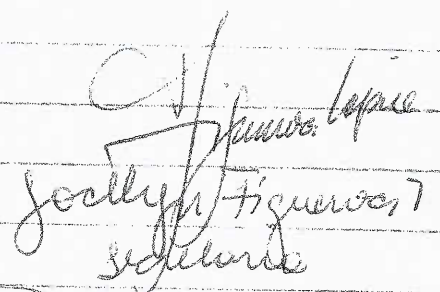 Figueroa
Jocllyn Figueroa T
Secretaria